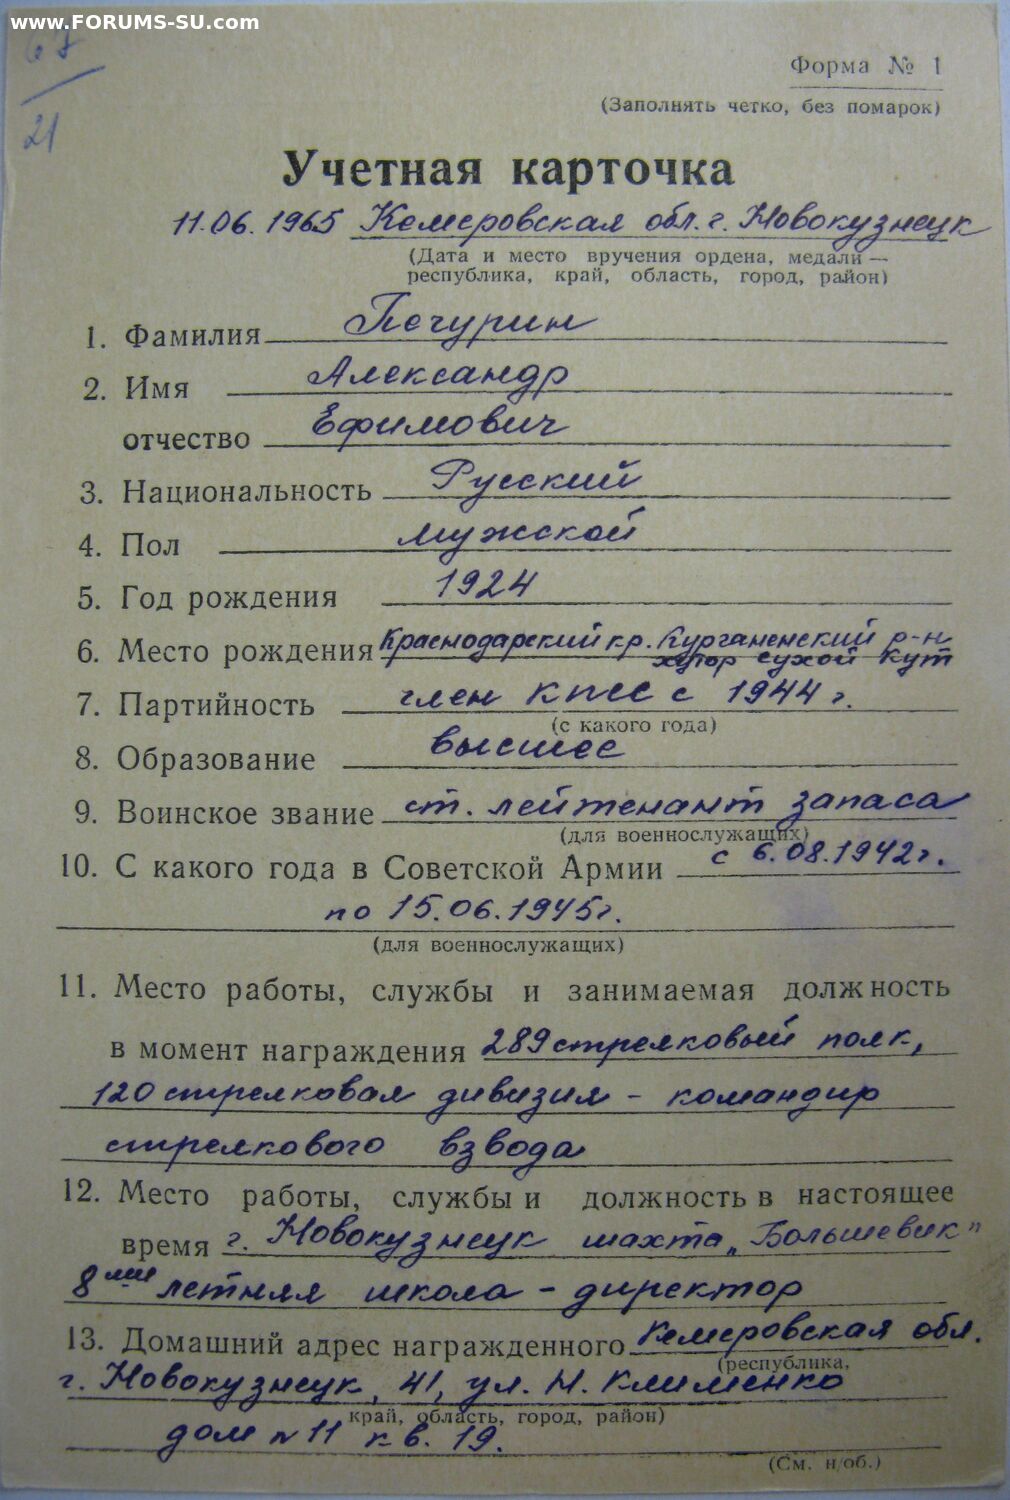 www.FORUMS-SU.com
67
21
Форма № 1
(Заполнять четко, без помарок)
Учетная карточка
11.06.1965 Кемеровская обл. г. Новокузнецк
(Дата и место вручения ордена, медали —
республика, край, область, город, район)
1. Фамилия Печурин
2. Имя Александр
отчество Ефимович
3. Национальность Русский
4. Пол мужской
5. Год рождения 1924
6. Место рождения Краснодарский кр. Курганенский р-н
хутор сухой Кут
7. Партийность член КПСС с 1944 г.
(с какого года)
8. Образование высшее
9. Воинское звание ст. лейтенант запаса
(для военнослужащих)
10. С какого года в Советской Армии с 6.08.1942г.
по 15.06.1945г.
(для военнослужащих)
11. Место работы, службы и занимаемая должность
в момент награждения 289 стрелковый полк,
120 стрелковая дивизия - командир
стрелкового взвода
12. Место работы, службы и должность в настоящее
время г. Новокузнецк шахта „Большевик"
8ми летняя школа - директор
13. Домашний адрес награжденного Кемеровская обл.
(республика,
г. Новокузнецк, 41, ул. Н. Клименко
край, область, город, район)
дом № 11 кв. 19.
(См. н/об.)